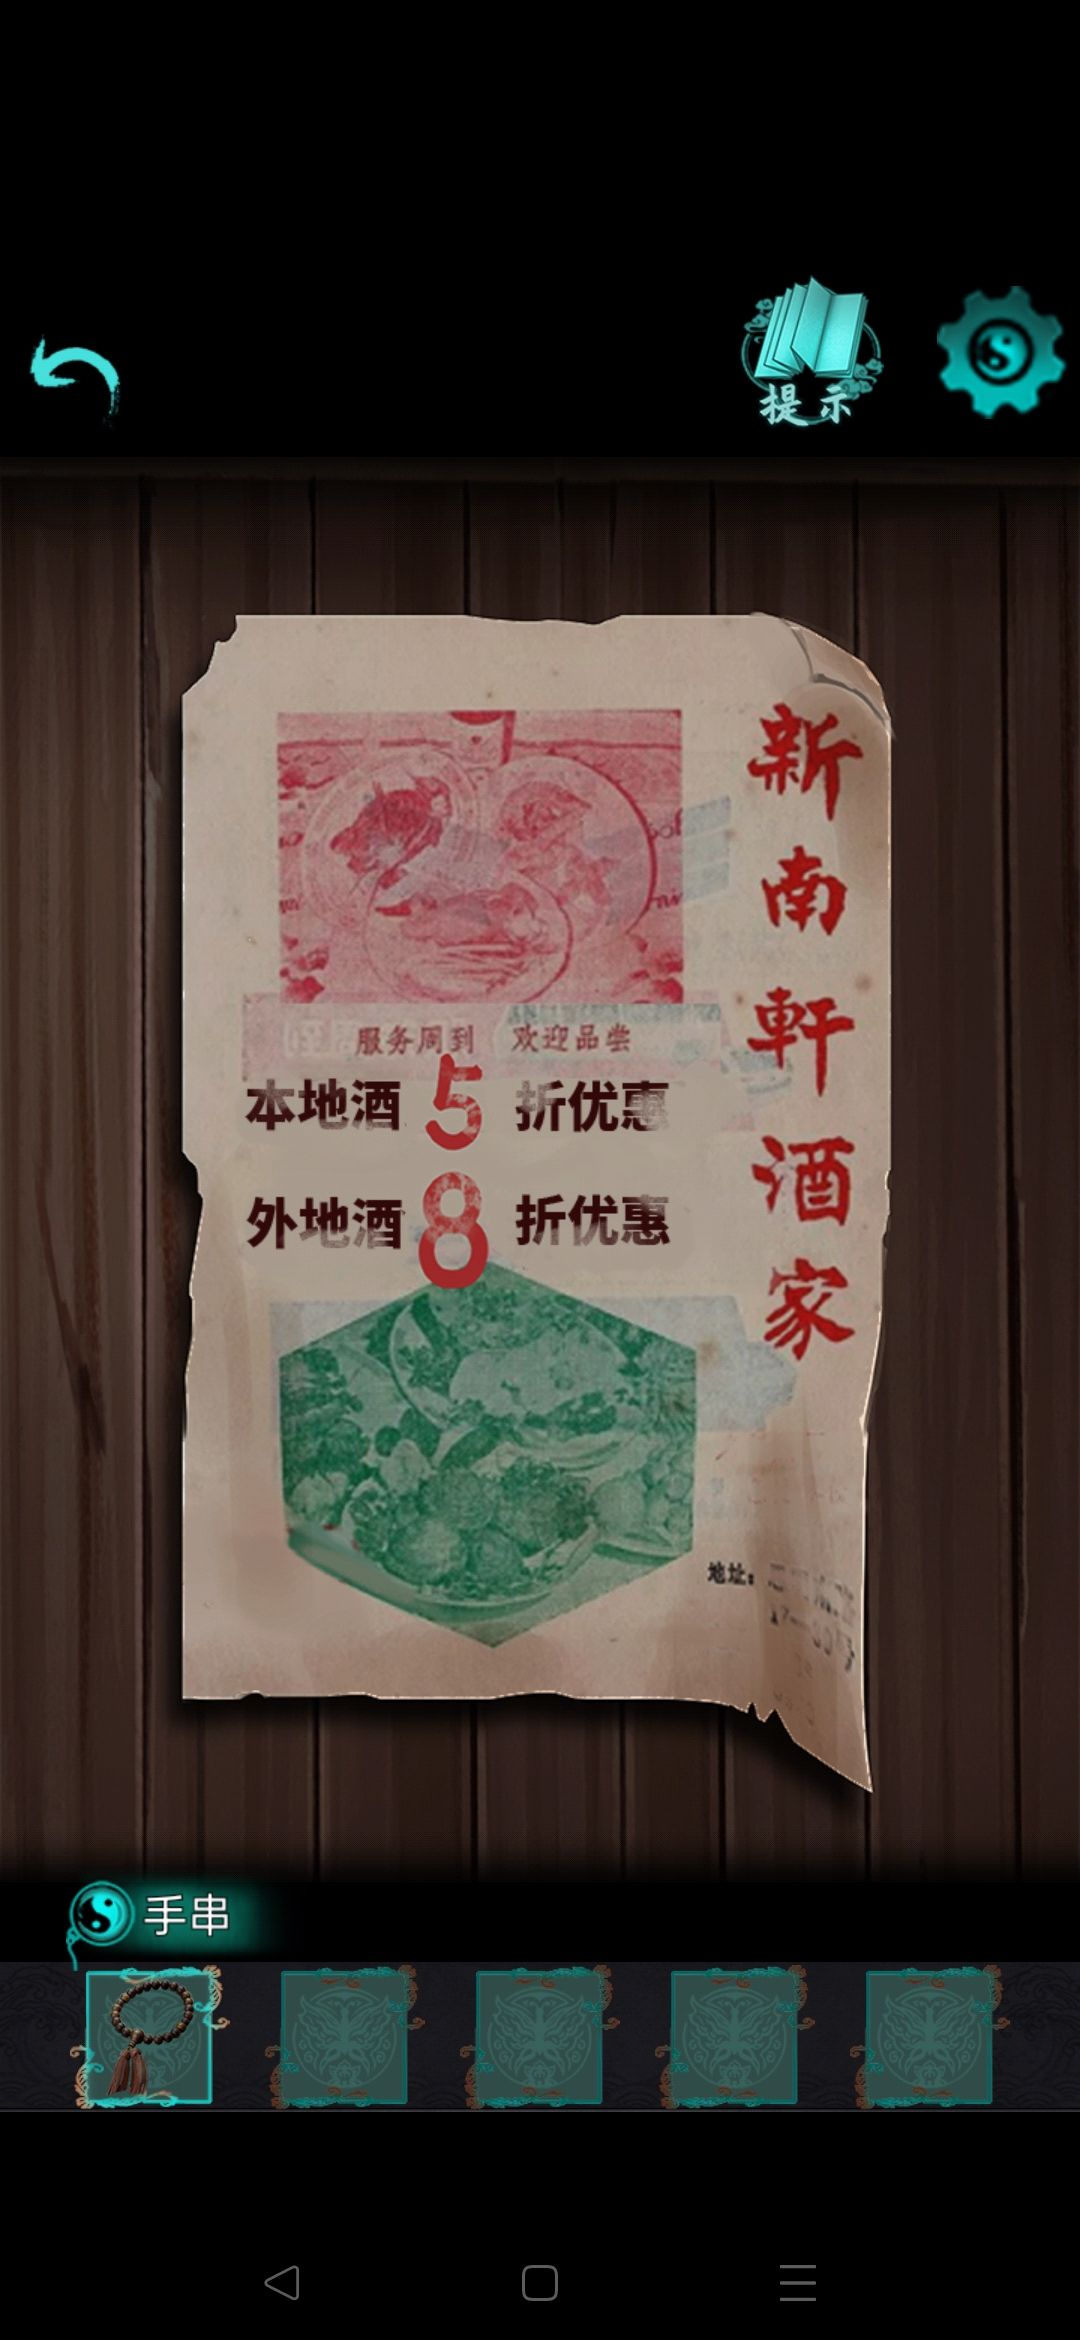 提示
新南軒酒家
服务周到 欢迎品尝
本地酒5折优惠
外地酒8折优惠
地址：
手串